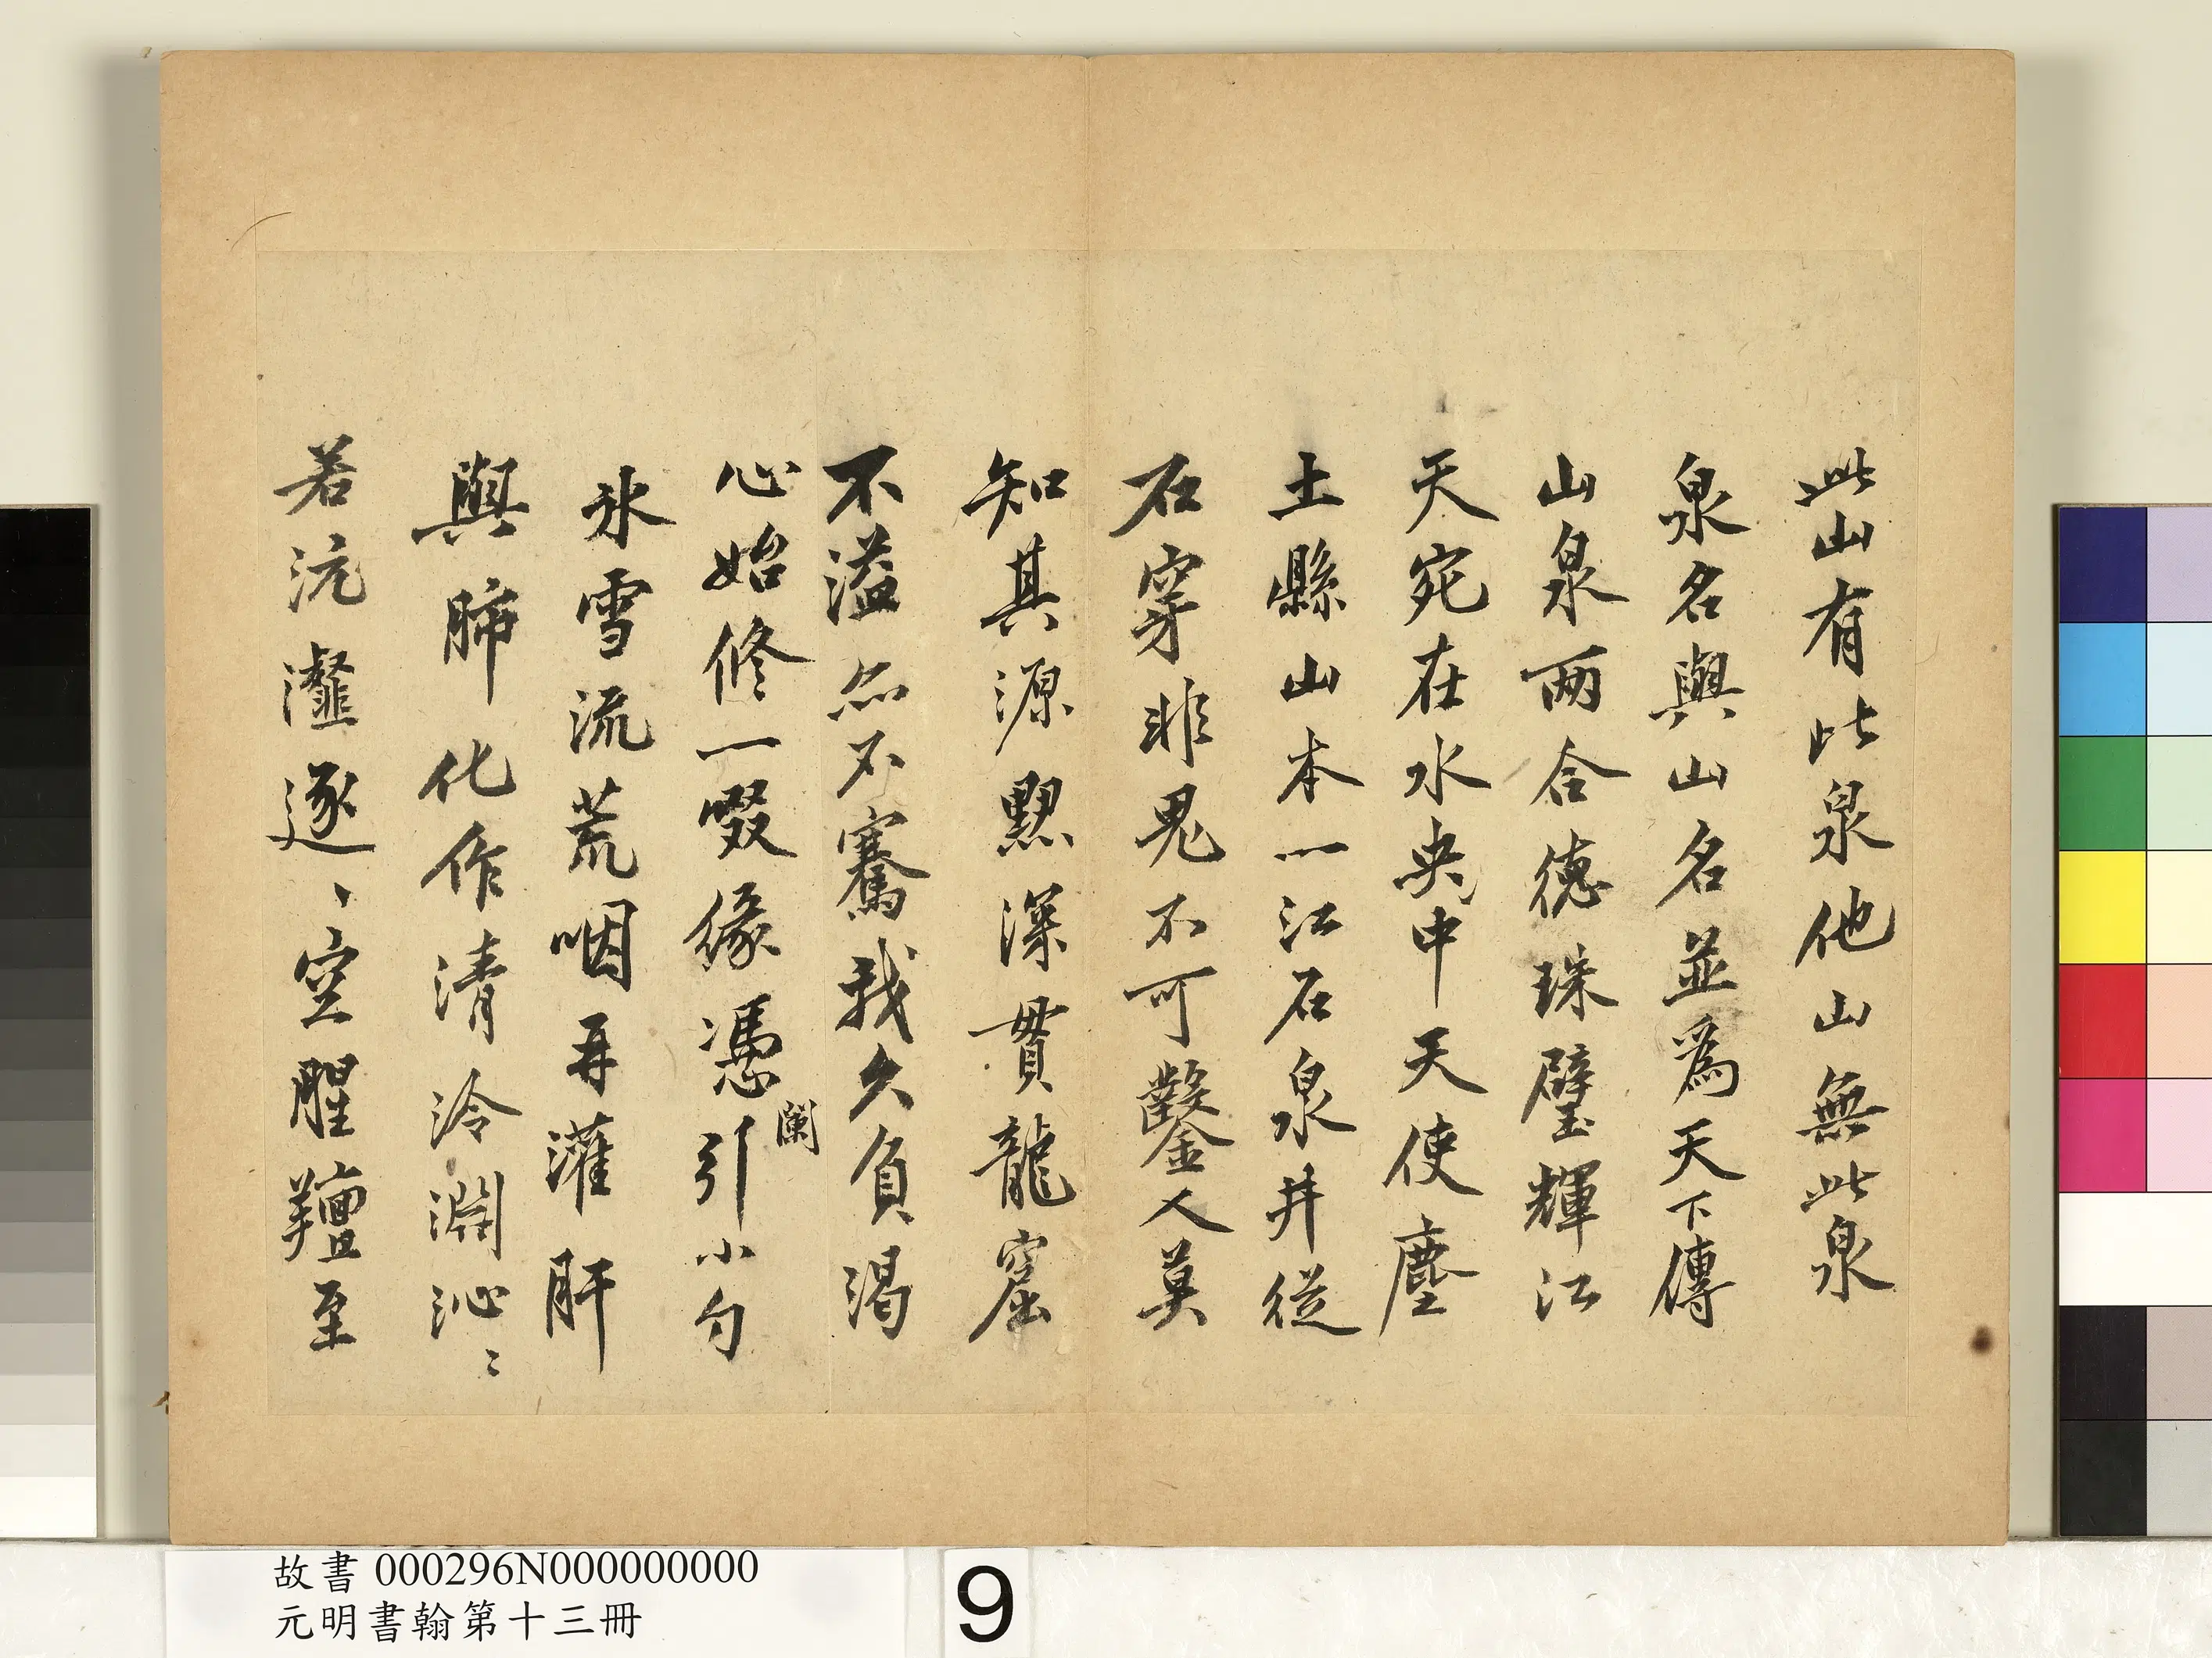 此山有此泉他山無此泉
泉名與山名並為天下傳
山泉兩合德珠璧輝江
天宛在水央中天使塵
土縣山本一江石泉井從
石穿非鬼不可鑿人莫
知其源黙深貫龍窟
不溢亦不騫我久負渴
心始修一啜緣憑闌引小勺
氷雪流荒咽再灌肝
與肺化作清泠淵沁〻
若沆瀣逐、空腥羶至
故書 000296N000000000
元明書翰第十三冊
9